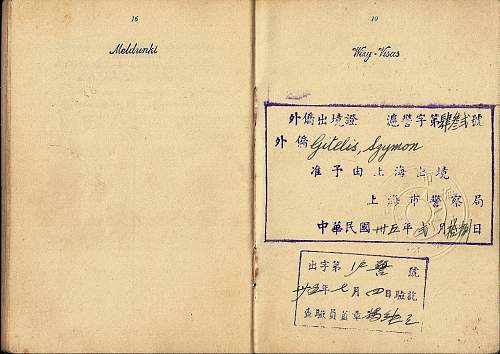 16
Meldunki
19
Wizy-Visas
外僑出境證 滬警字第肆叁貳號
外僑 Gitelis, Szymon
准予由上海出境
上海市警察局
中華民國卅五年 月 日
出字第 號
卅五年七月四日驗訖
查驗員蓋章